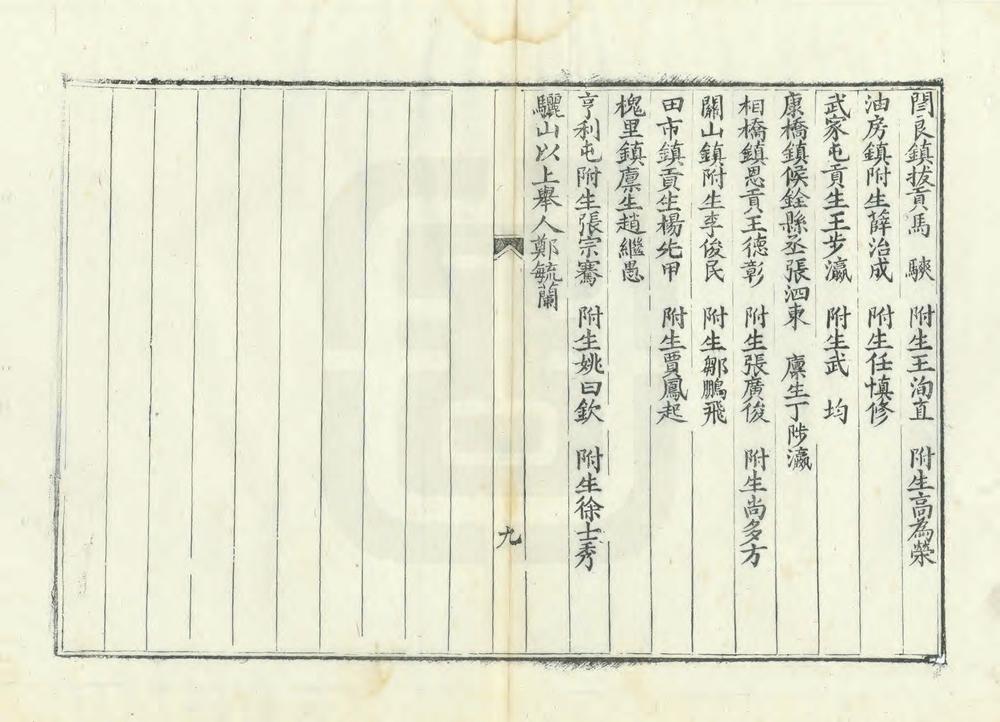 閆良鎮拔貢馬　駚　附生王洵直　附生高為榮
油房鎮附生薛治成　附生任慎修
武家屯貢生王步瀛　附生武　均
康橋鎮候銓縣丞張泗東　廩生丁陟瀛
相橋鎮恩貢王德彰　附生張廣俊　附生尚多方
關山鎮附生李俊民　附生鄒鵬飛
田市鎮貢生楊先甲　附生賈鳳起
槐里鎮廩生趙繼愚
亨利屯附生張宗騫　附生姚曰欽　附生徐士秀
驪山以上舉人鄭毓蘭
九